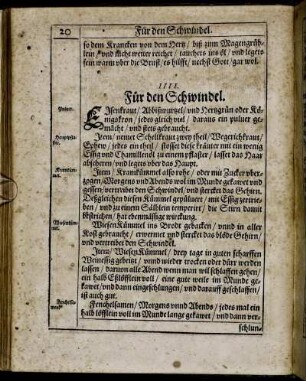 20 Für den Schwindel.
so dem Krancken von dem Hertz / biß zum Magengrüblein
und legets
sein warm vber die Brust / es hilfft / nechst Gott / gar wol.
IIII.
Für den Schwindel.
Pulver.
EIsenkraut / Abbißwurtzel / und Heydgrün oder
nigskron / jedes gleich viel / daraus ein pulver gemacht /
und stets gebraucht.
Item / nemet Schellkraut zwey theil / Wegerichkraut /
Ephew / jedes ein theil / stosset diese kräuter mit ein wenig
Essig und Chamillenöl zu einem pflaster / lasset das Haar
abscheren / und legets vber das Haupt.
Item / Kramkümmel also rohe / oder mit Zucker vberzogen /
Morgens und Abends vol im Munde gekawet und
gessen / vertreibet den Schwindel / und stercket das Gehirn.
Deßgleichen diesen Kümmel gepülvert / mit Essig zerrieben /
und zu einem Sälblein temperirt / die Stirn damit
bestrichen / hat ebenmässige wirckung.
WiesenKümmel ins Brodt gebacken / und in aller
Kost gebraucht / erwermet und stercket das blöde Gehirn /
und vertreibet den Schwindel.
Item / WiesenKümmel / drey tage in guten scharffen
Weinessig gebeizt / und wieder trocken oder dürr werden
lassen / darvon alle Abend wenn man wil schlaffen gehen /
ein halb Eßlöffel vol / eine gute weile im Munde gekawet /
und dann eingeschlungen / und darauff geschlaffen /
ist auch gut.
Fenchelsamen / Morgens und Abends / jedes mal ein
halb löfflein vol im Munde lange gekawet / und dann verschlun-